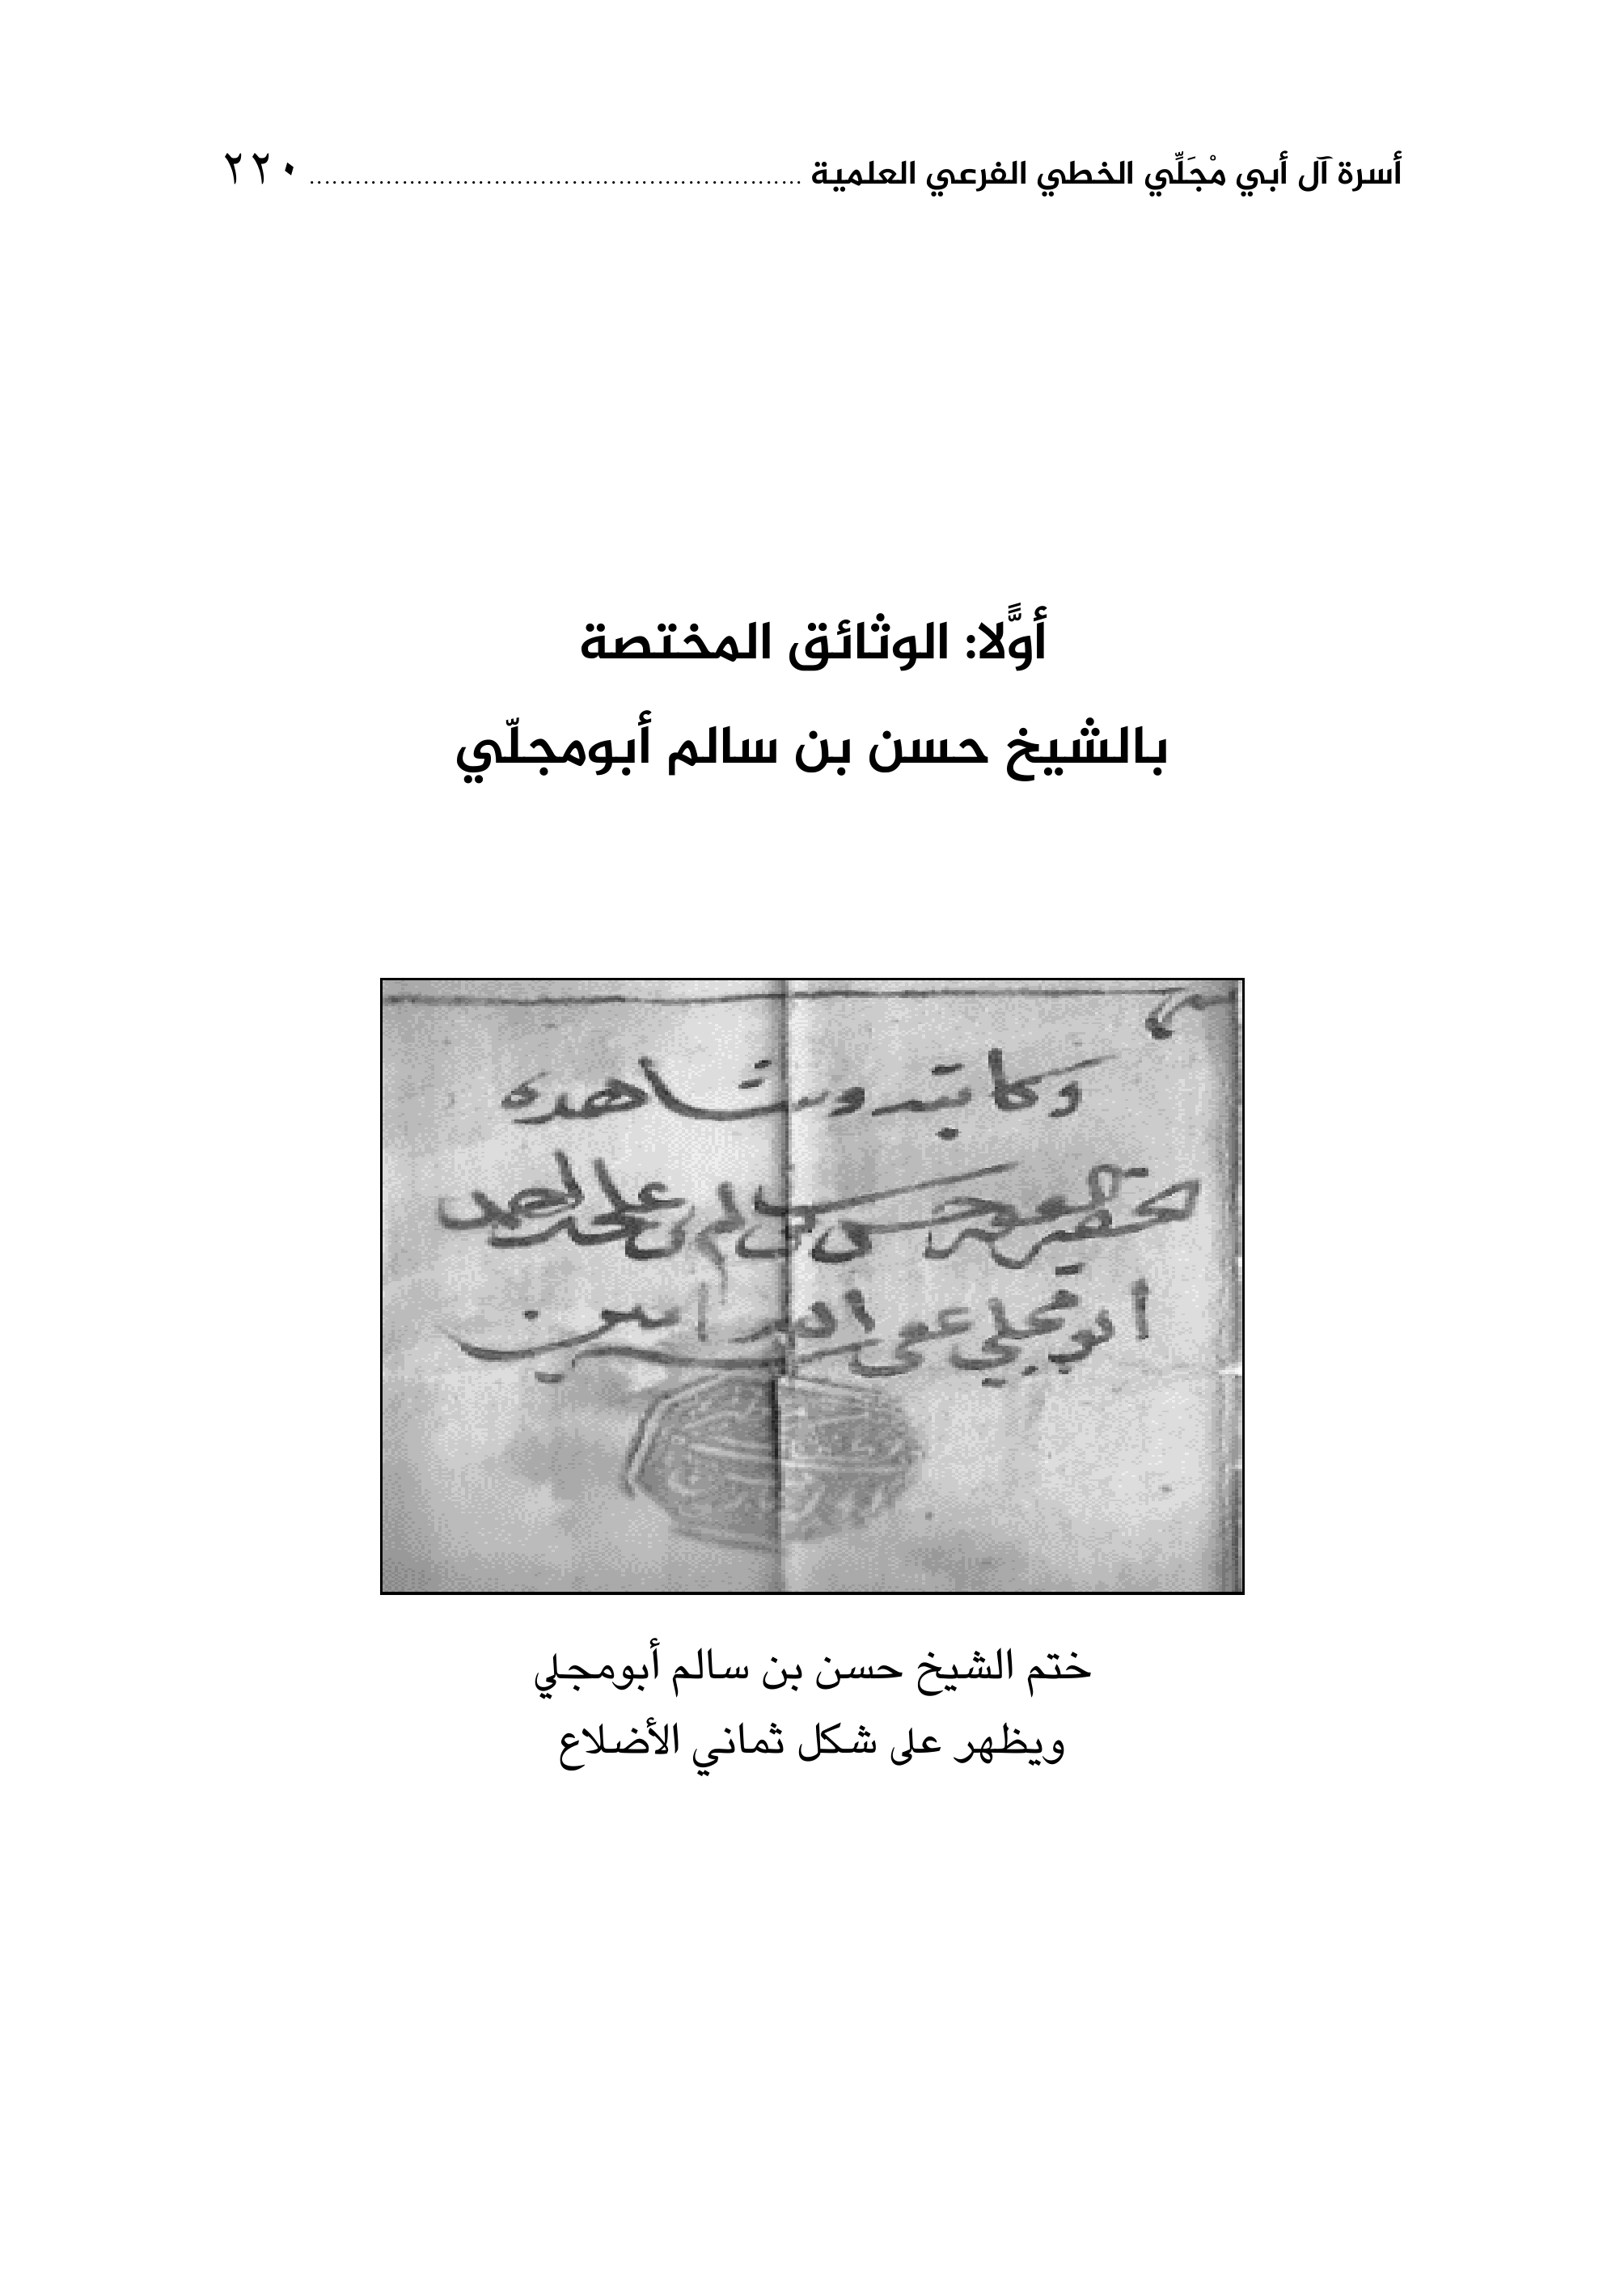 أسرة آل أبي مْجَلِّي الخطي الفرعي العلمية ................................................................ ٢٢٠
أوَّلا: الوثائق المختصة
بالشيخ حسن بن سالم أبومجلّي
وكاتبه وشاهده
الحقير حسن بن سالم بن علي
ابو مجلي عفى الله امين
ختم الشيخ حسن بن سالم أبومجلي
ويظهر على شكل ثماني الأضلاع